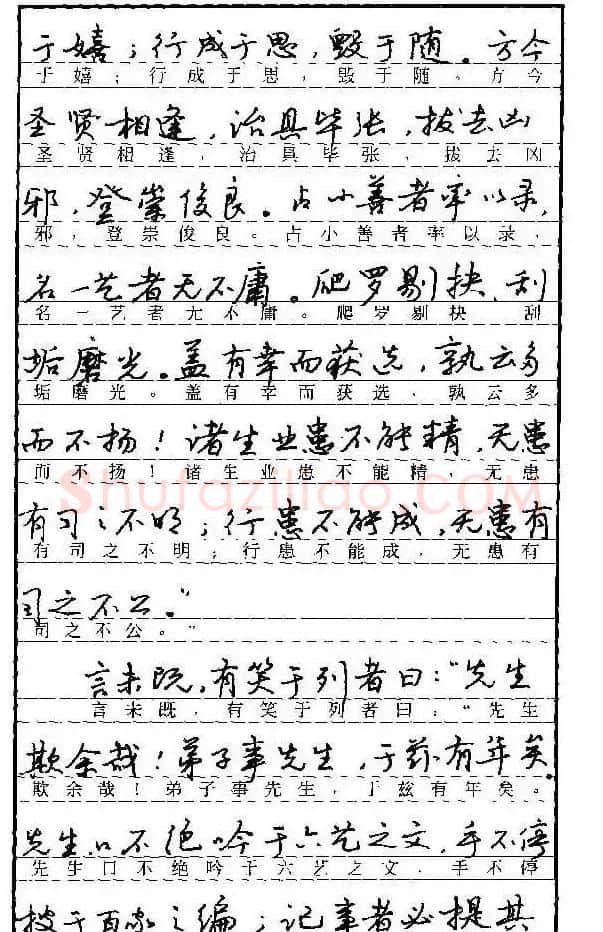 于嬉；行成于思，毁于随。方今
于嬉；行成于思，毁于随。方今
圣贤相逢，治具毕张，拔去凶
圣贤相逢，治具毕张，拔去凶
邪，登崇俊良。占小善者率以录，
邪，登崇俊良。占小善者率以录，
名一艺者无不庸。爬罗剔抉，刮
名一艺者无不庸。爬罗剔抉，刮
垢磨光。盖有幸而获选，孰云多
垢磨光。盖有幸而获选，孰云多
而不扬！诸生业患不能精，无患
而不扬！诸生业患不能精，无患
Shufaziliao.COM
有司之不明；行患不能成，无患有
有司之不明；行患不能成，无患有
司之不公。"
司之不公。"
言未既，有笑于列者曰："先生
言未既，有笑于列者曰："先生
欺余哉！弟子事先生，于兹有年矣。
欺余哉！弟子事先生，于兹有年矣。
先生口不绝吟于六艺之文，手不停
先生口不绝吟于六艺之文，手不停
披于百家之编；记事者必提其